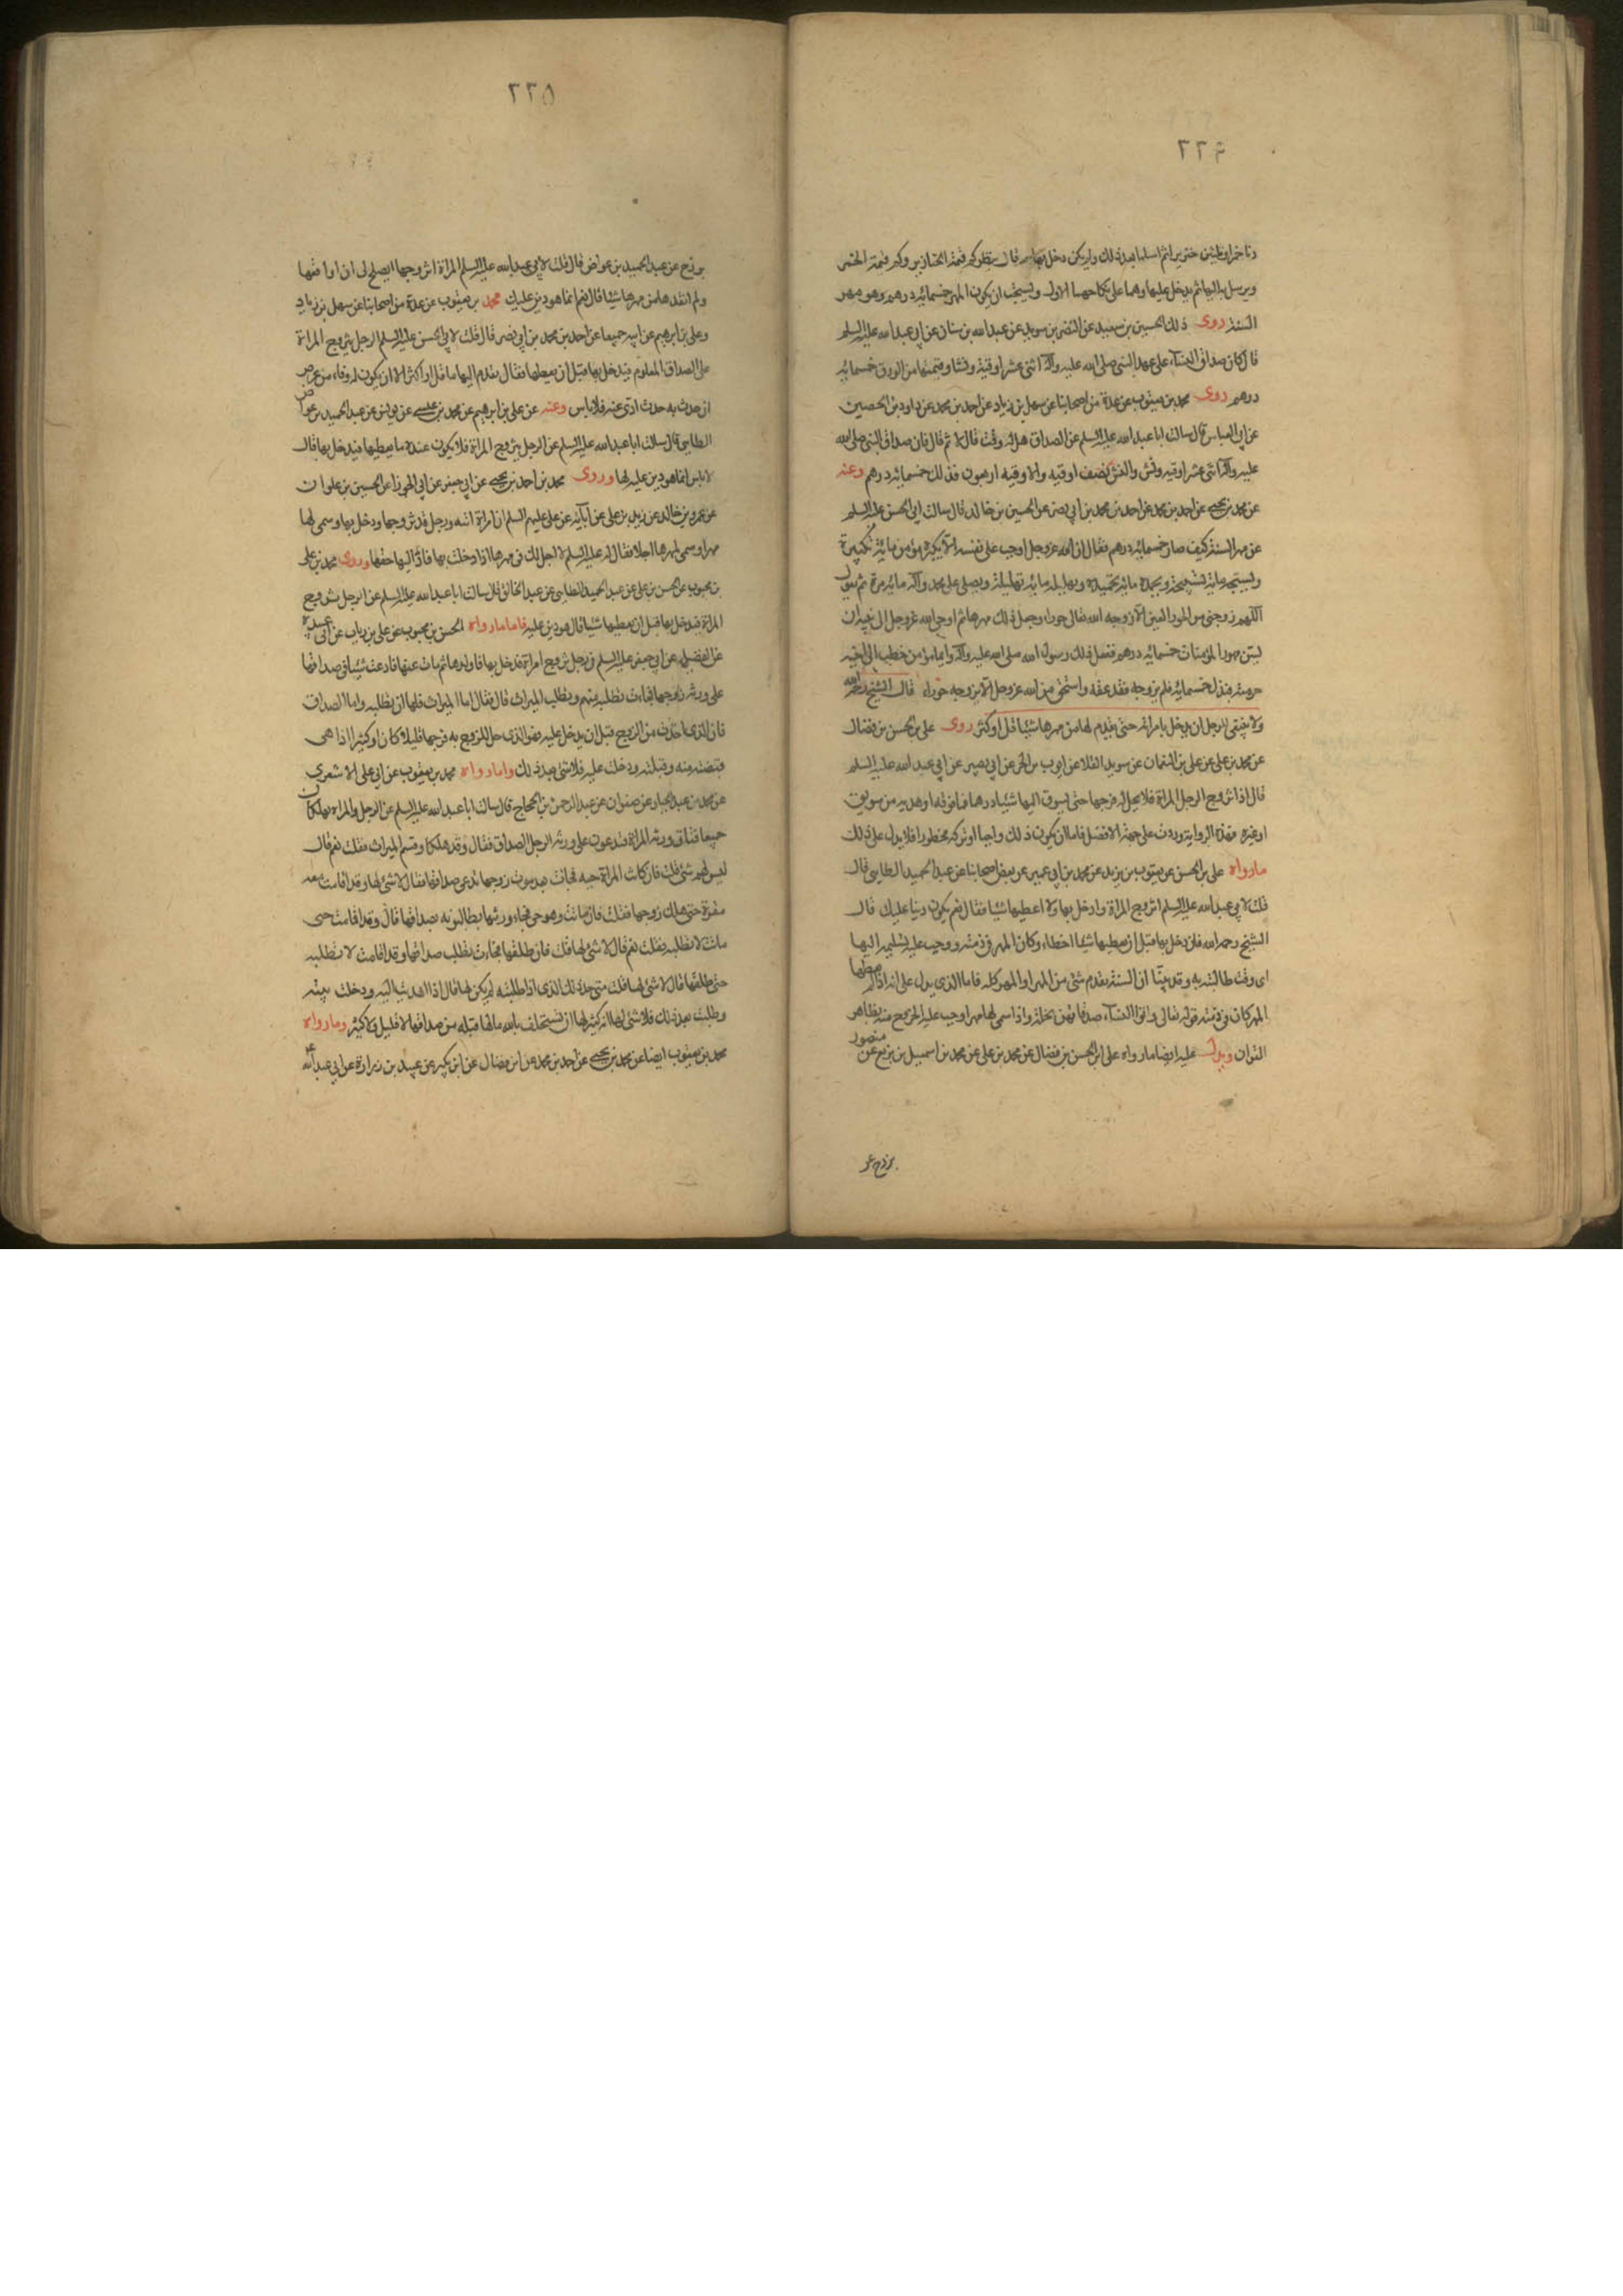 ٢٢٤
دنا خمرا وثلثين خنزيرا ثم اسلما بعد ذلك ولم يكن دخل بها قال ينظر كم قيمة الخنازير وكم قيمة الخمر
ويرسل بها اليها ثم يدخل عليها وهما على نكاحهما الاول ويستحب ان يكون المهر خمسمائة درهم وهو مهر
السنة روى ذلك الحسين بن سعيد عن النضر بن سويد عن عبد الله بن سنان عن ابي عبد الله عليه السلم
قال كان صداق النساء على عهد النبي صلى الله عليه وآله اثنى عشر اوقية ونشا وقيمتها من الورق خمسمائة
درهم روى محمد بن يعقوب عن عدة من اصحابنا عن سهل بن زياد عن احمد بن محمد عن داود بن الحصين
عن ابي العباس قال سالت ابا عبد الله عليه السلم عن الصداق هل له وقت قال لا ثم قال كان صداق النبي صلى الله
عليه وآله اثنى عشر اوقيه ونش والنش نصف اوقيه والاوقيه اربعون فذلك خمسمائة درهم وعنه
عن محمد بن يحيى عن احمد بن محمد عن احمد بن محمد بن ابي نصر عن الحسين بن خالد قال سالت ابي الحسن عليه السلم
عن مهر السنة كيف صار خمسمائة درهم فقال ان الله عز وجل اوجب على نفسه الا يكبره مؤمن مائة تكبيرة
ويسبحه مائة تسبيحة ويحمده مائة تحميدة ويهلله مائة تهليلة ويصلى على محمد وآله مائة مرة ثم يقول
اللهم زوجنى من الحور العين الا زوجه الله تعالى حورا وجعل ذلك مهرها ثم اوحى الله عز وجل الى نبيه ان
يسن مهور المؤمنات خمسمائة درهم ففعل ذلك رسول الله صلى الله عليه وآله وايما مؤمن خطب الى اخيه
حرمته فبذل خمسمائة فلم يزوجه فقد عقه واستحق من الله عز وجل الا يزوجه حوراء قال الشيخ رحمه الله
ولا ينبغى للرجل ان يدخل بامراته حتى يقدم لها من مهرها شيئا قل او كثر روى على بن الحسن بن فضال
عن محمد بن على عن على بن النعمان عن سويد القلا عن ايوب بن الحر عن ابي بصير عن ابي عبد الله عليه السلم
قال اذا تزوج الرجل المراة فلا يحل له فرجها حتى يسوق اليها شيئا درهما فما فوقه او هديه من سويق
او غيره فهذه الرواية وردت على جهة الافضل فاما ان يكون ذلك واجبا او تركه محظورا فلا يدل على ذلك
ما رواه على بن الحسن عن يعقوب بن يزيد عن محمد بن ابي عمير عن بعض اصحابنا عن عبد الحميد الطايى قال
قلت لابي عبد الله عليه السلم اتزوج المراة وادخل بها ولا اعطيها شيئا فقال نعم يكون دينا عليك قال
الشيخ رحمه الله فان دخل بها قبل ان يعطيها شيئا اخطاء وكان المهر فى ذمته ووجب عليه تسليمه اليها
اى وقت طالبته به وقد بينا ان السنة تقدم شئ من المهر او المهر كله فاما الذى يدل على انه اذا لم يعطها
المهر كان فى ذمته قوله تعالى واتوا النساء صدقاتهن نحلة واذا سمى لها مهرا وجب عليه الخروج منه بظاهر
القران ويدل عليه ايضا ما رواه على ابن الحسن بن فضال عن محمد بن على عن محمد بن اسمعيل بن بزيع عن منصور
بزرج عن
٢٢٥
بزرج عن عبد الحميد بن عواض قال قلت لابي عبد الله عليه السلم المراة اتزوجها ايصلح لى ان اواقعها
ولم انقدها من مهرها شيئا قال نعم انما هو دين عليك محمد بن يعقوب عن عدة من اصحابنا عن سهل بن زياد
وعلى بن ابرهيم عن ابيه جميعا عن احمد بن محمد بن ابي نصر قال قلت لابي الحسن عليه السلم الرجل يتزوج المراة
على الصداق المعلوم فيدخل بها قبل ان يعطيها فقال يقدم اليها ما قل او كثر الا ان يكون له وفاء من عرض
ان حدث به حدث ادى عنه فلا باس وعنه عن على بن ابرهيم عن محمد بن عيسى عن يونس عن عبد الحميد بن عواض
الطايى قال سالت ابا عبد الله عليه السلم عن الرجل يتزوج المراة فلا يكون عنده ما يعطيها فيدخل بها قال
لا باس انما هو دين عليه لها وروى محمد بن احمد بن يحيى عن ابي جعفر عن ابي الجوزا عن الحسين بن علوان
عن عمرو بن خالد عن زيد بن على عن آبائه عن على عليهم السلم ان امراة اتته ورجل قد تزوجها ودخل بها وسمى لها
مهرا وسمى لمهرها اجلا فقال له عليه السلم لا اجل لك فى مهرها اذا دخلت بها فاد اليها حقها وروى محمد بن على
بن محبوب عن الحسن بن على عن عبد الحميد الطايى عن عبد الخالق قال سالت ابا عبد الله عليه السلم عن الرجل يتزوج
المراة فيدخل بها قبل ان يعطيها شيئا قال هو دين عليه فاما ما رواه الحسن بن محبوب عن على بن رياب عن ابى عبيدة
عن الفضيل عن ابي جعفر عليه السلم فى رجل تزوج امراة فدخل بها فاولدها ثم مات عنها فادعت شيئا من صداقها
على ورثه زوجها فجاءت تطلبه منهم وتطلب الميراث قال فقال اما الميراث فلها ان تطلبه واما الصداق
فان الذى اخذت من الزوج قبل ان يدخل عليه فهو الذى حل للزوج به فرجها قليلا كان او كثيرا اذا هى
قبضته منه وقبلته ودخلت عليه فلا شئ بعد ذلك واما رواه محمد بن يعقوب عن ابي على الاشعرى
عن محمد بن عبد الجبار عن صفوان عن عبد الرحمن بن الحجاج قال سالت ابا عبد الله عليه السلم عن الرجل والمراة يهلكان
جميعا فتاتى ورثه المراة فيدعون على ورثه الرجل الصداق فقال وقد هلكا وقسم الميراث فقلت نعم قال
ليس لهم شئ قلت فان كانت المراة حيه فجاءت بعد موت زوجها تدعى صداقها فقال لا شئ لها وقد اقامت معه
مقرة حتى هلك زوجها فقلت فان ماتت وهو حى فجاء ورثتها يطالبونه بصداقها قال وقد اقامت حتى
ماتت لا تطلبه فقلت نعم قال لا شئ لها قلت فان طلقها فجاءت تطلب صداقها وقد اقامت لا تطلبه
حتى طلقها قال لا شئ لها قلت متى حد ذلك الذى اذا طلبته لم يكن لها قال اذا اهديت اليه ودخلت بيته
وطلبت بعد ذلك فلا شئ لها انه كثير لها ان تستحلف بالله ما لها قبله من صداقها لا قليل ولا كثير وما رواه
محمد بن يعقوب ايضا عن محمد بن يحيى عن احمد بن محمد عن ابن فضال عن ابن بكير عن عبيد بن زرارة عن ابي عبد الله